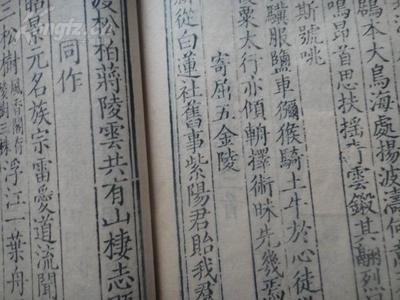 本大鳥海處揚波濤
鳴昂首思扶搖雲鍛其翮烈
斯號咷
驥服鹽車獼猴騎土牛於心徒
粟太行亦傾輈擇術昧先幾焉
寄屈五金陵
新從白蓮社舊事紫陽君貽我
松柏蔣陵雲共有山棲志
同作
景元名族宗雷愛道流聞
三松樹浮江一葉舟